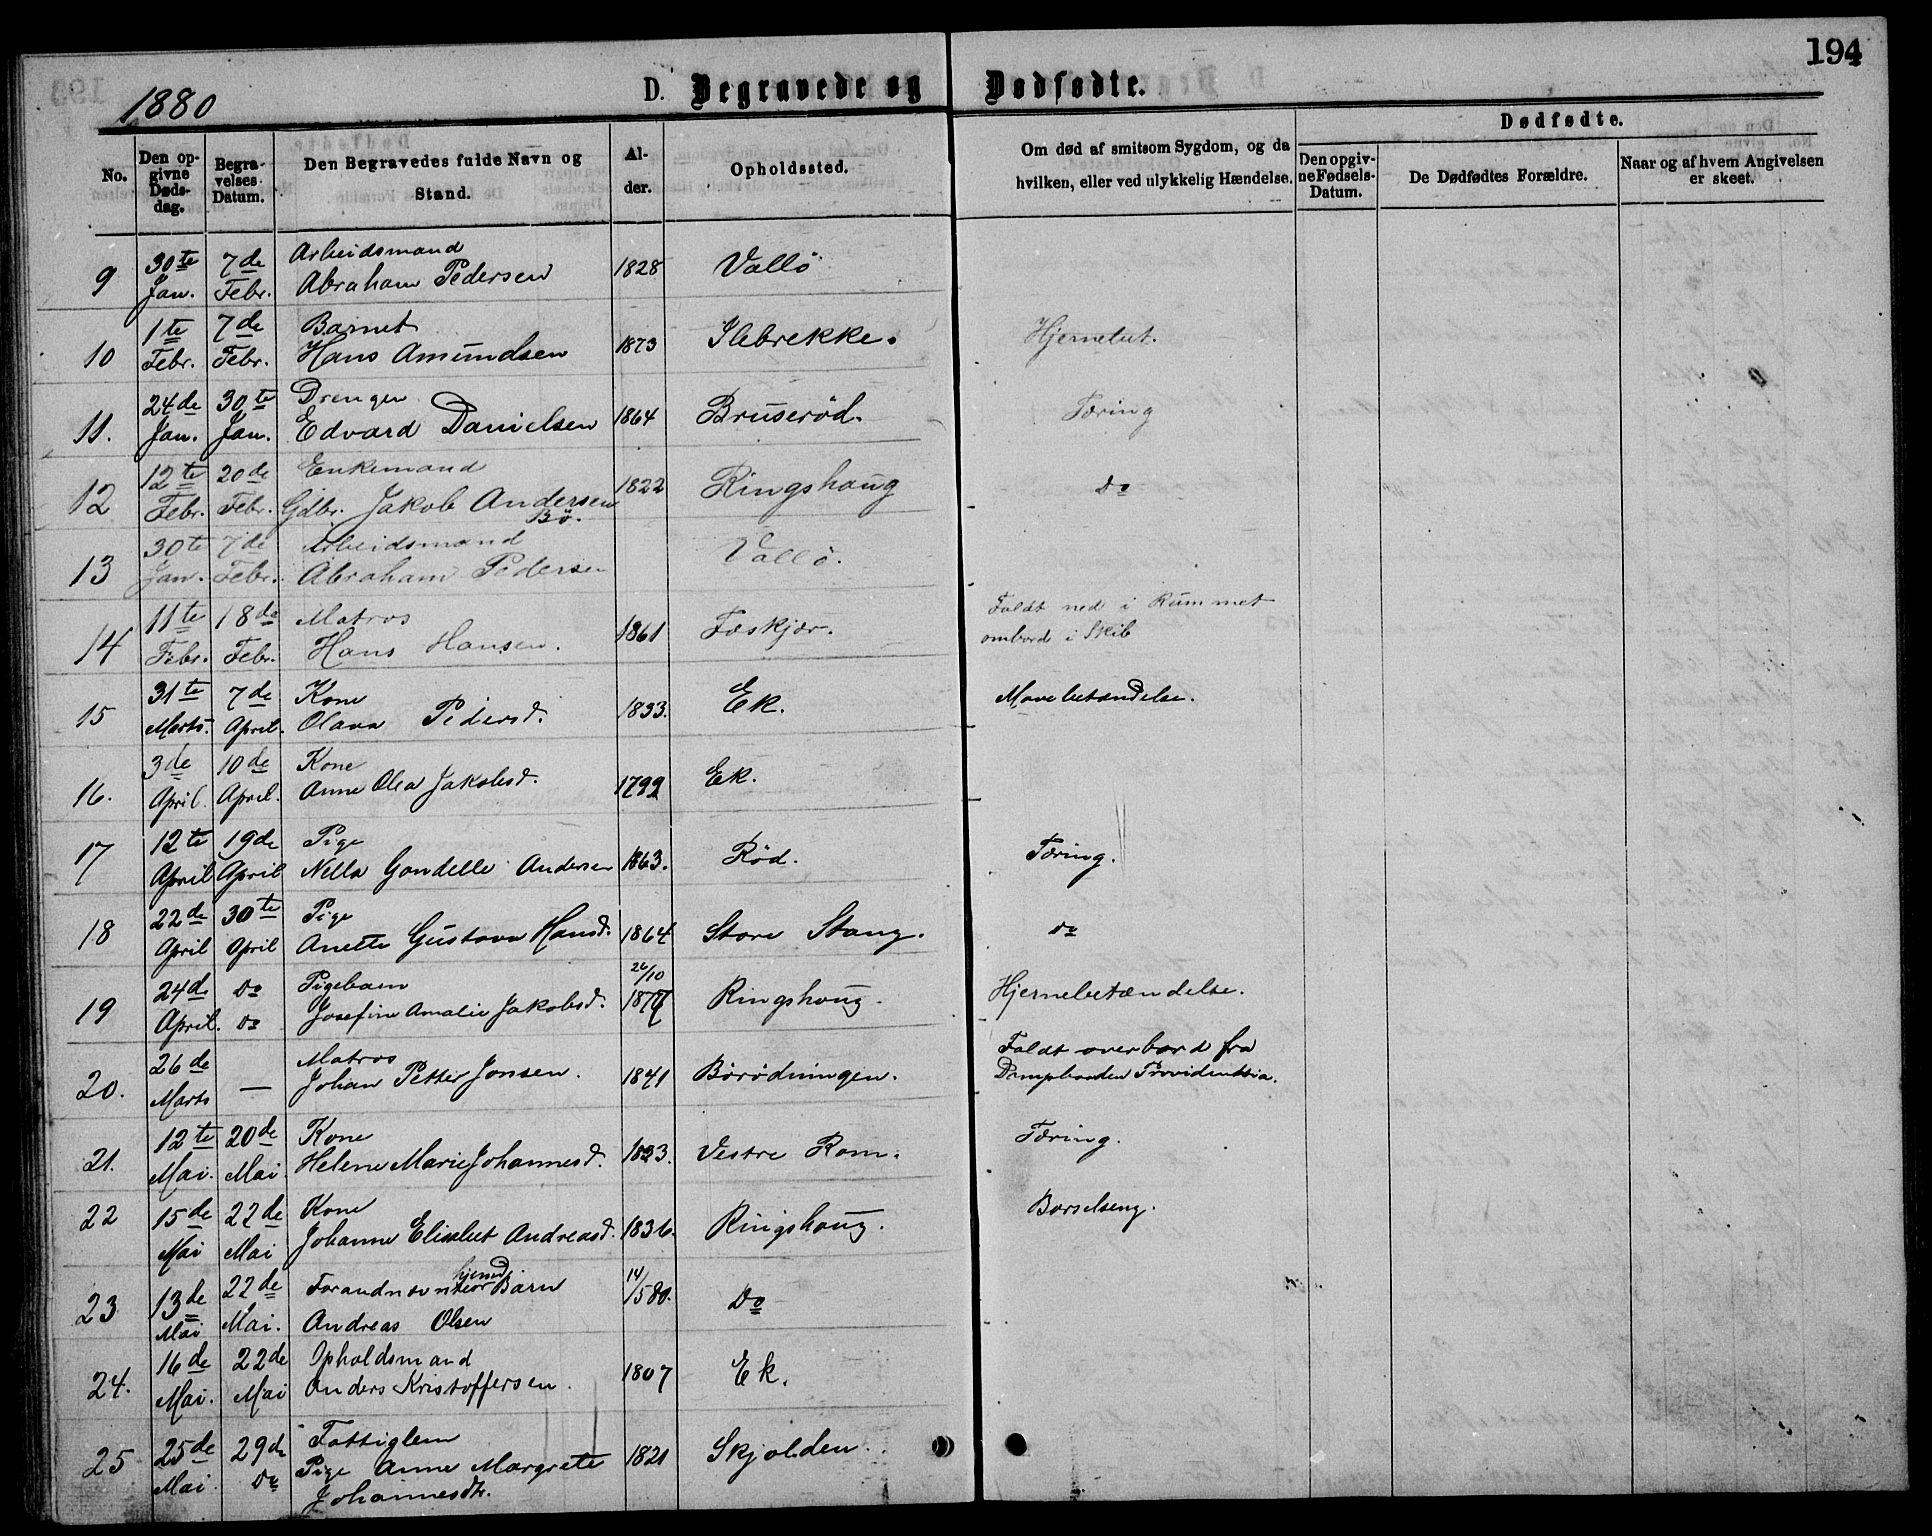 194
1880
D. Begravede og Dødfødte.
No.
Den opgivne Dødsdag.
Begravelses Datum.
Den Begravedes fulde Navn og Stand.
Alder.
Opholdssted.
Om død af smitsom Sygdom, og da hvilken, eller ved ulykkelig Hændelse.
Dødfødte.
Den opgivne Fødsels-Datum.
De Dødfødtes Forældre.
Naar og af hvem Angivelsen er skeet.
9 30te Jan. 7de Febr. Arbeidsmand Abraham Pedersen 1828 Vallö
10 1te Febr. 7de Febr. Barnet Hans Amundsen 1873 Ilebrekke. Hjernebet.
11. 24de Jan. 30te Jan. Drengen Edvard Danielsen 1864 Bruseröd. Tæring
12 12te Febr. 20de Febr. Enkemand Gdbr. Jakob Andersen Bö. 1822 Ringshaug Do
13 30te Jan. 7de Febr. Arbeidsmand Abraham Pedersen Vallö.
14 11te Febr. 18de Febr. Matros Hans Hansen. 1861 Feskjær. Faldt ned i Rummet ombord i Skib
15 31te Marts. 7de April. Kone Olava Pedersd. 1833. Ek. Mavebetændelse.
16. 3de April. 10de April. Kone Anne Olea Jakobsd. 1799 Ek.
17 12te April 19de April Pige Nella Gondelle Andersen 1863. Röd. Tæring.
18 22de April 30te April Pige Anette Gustava Hansd. 1864 Store Stang. Do
19 24de April. Do Do Pigebarn Josefine Amalie Jakobsd. 26/10 1877 Ringshaug. Hjernebetændelse.
20. 26de Marts — Matros Johan Petter Jonsen. 1841 Börödningen. Faldt overbord fra Dampbaaden Providentsia.
21. 12te Mai. 20de Mai. Kone Helene Marie Johannesd. 1833. Vestre Rom. Tæring.
22 15de Mai 22de Mai Kone Johanne Elisabet Andreasd. 1836. Ringshaug. Barselseng.
23 13de Mai 22de Mai. hjemd. Barn Andreas Olsen 14/5 80. Do
24. 16de Mai. 22de Mai Opholdsmand Anders Kristoffersen. 1807 Ek.
25 25de Mai 29de Do Fattiglem Pige Anne Margrete Johannesdtr. 1821 Skjolden.